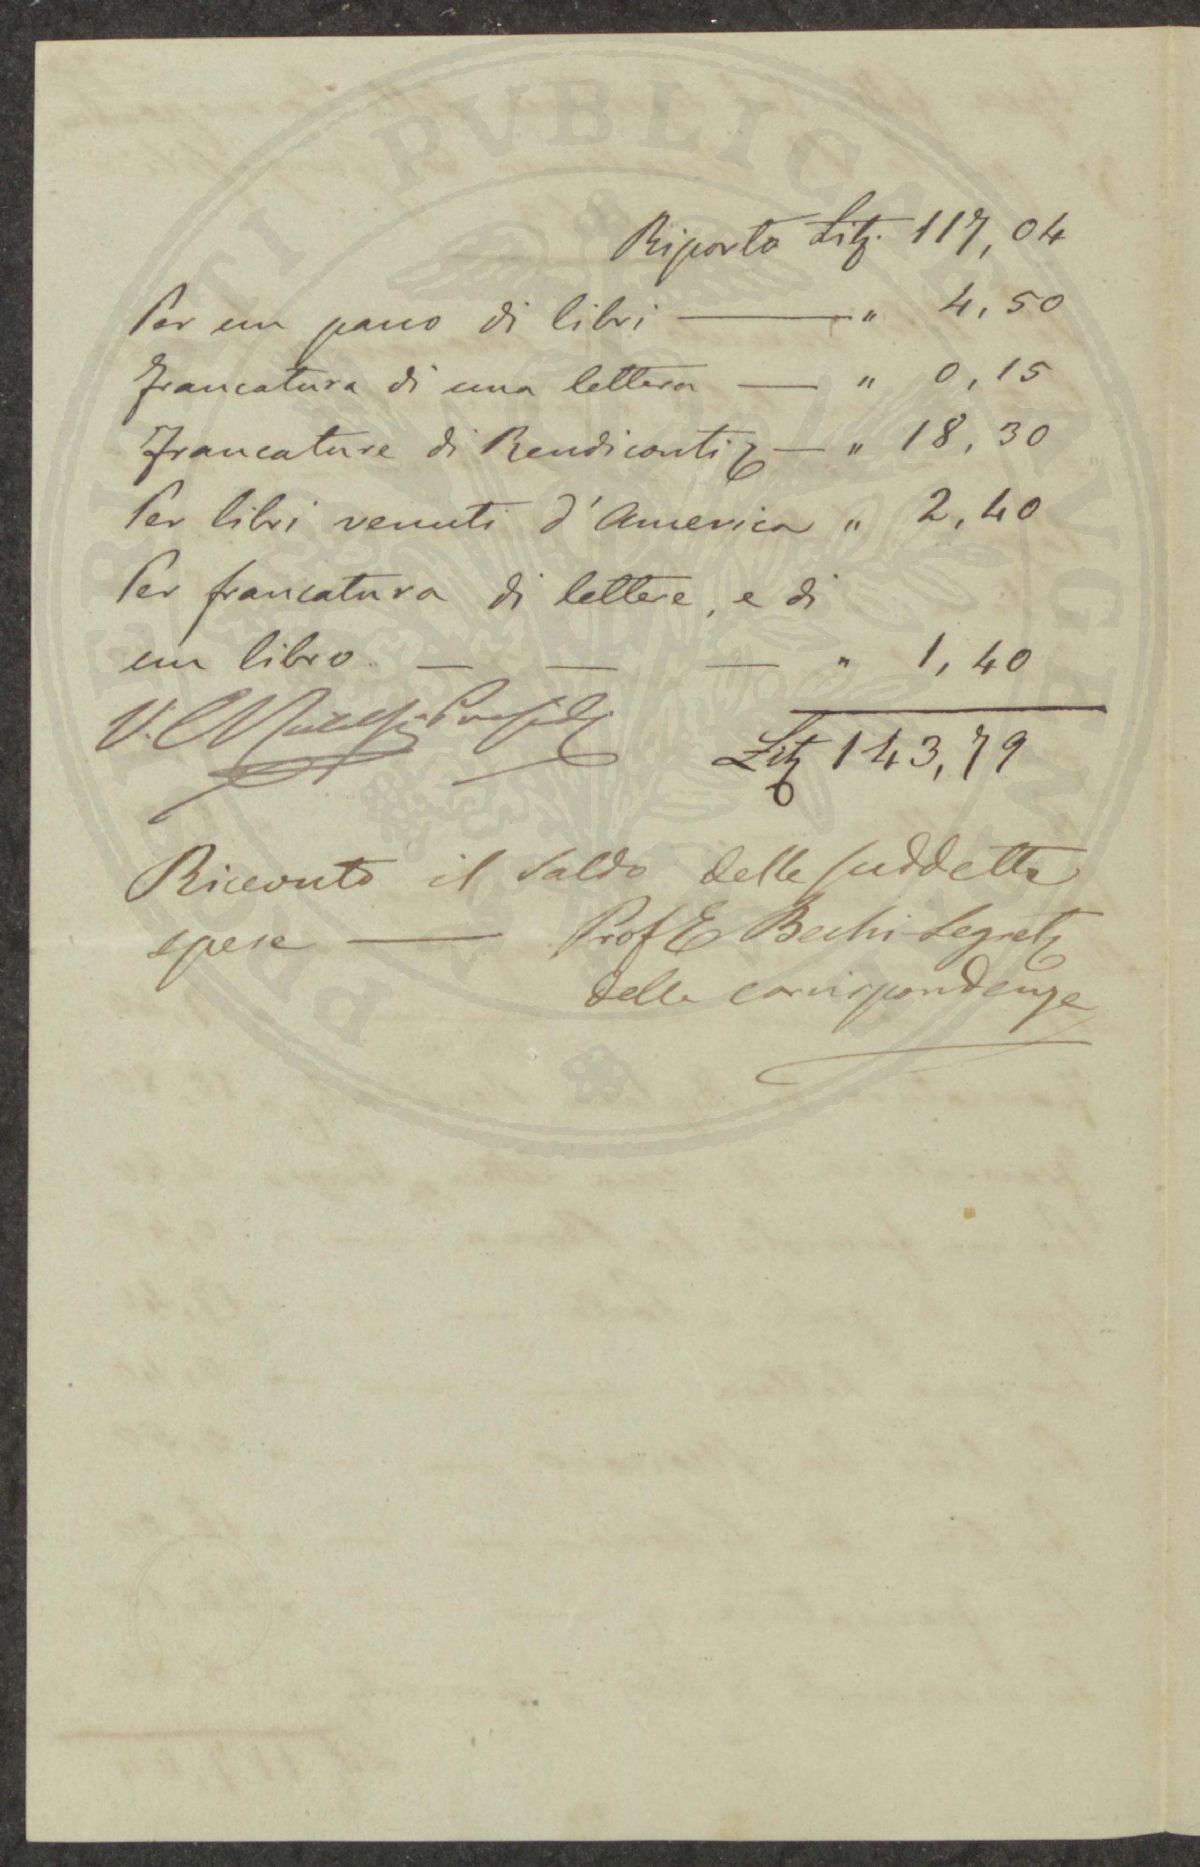 Riporto Lit. 117,04
Per un pacco di libri — " 4,50
Francatura di una lettera — " 0,15
Francature di Rendiconti — " 18,30
Per libri venuti d'America " 2,40
Per francatura di lettere, e di
un libro. — — — " 1,40
V.
Lit 143,79
Ricevuto il saldo delle suddette
spese — Prof E Bechi Segret
delle corrispondenze
PUBLICA